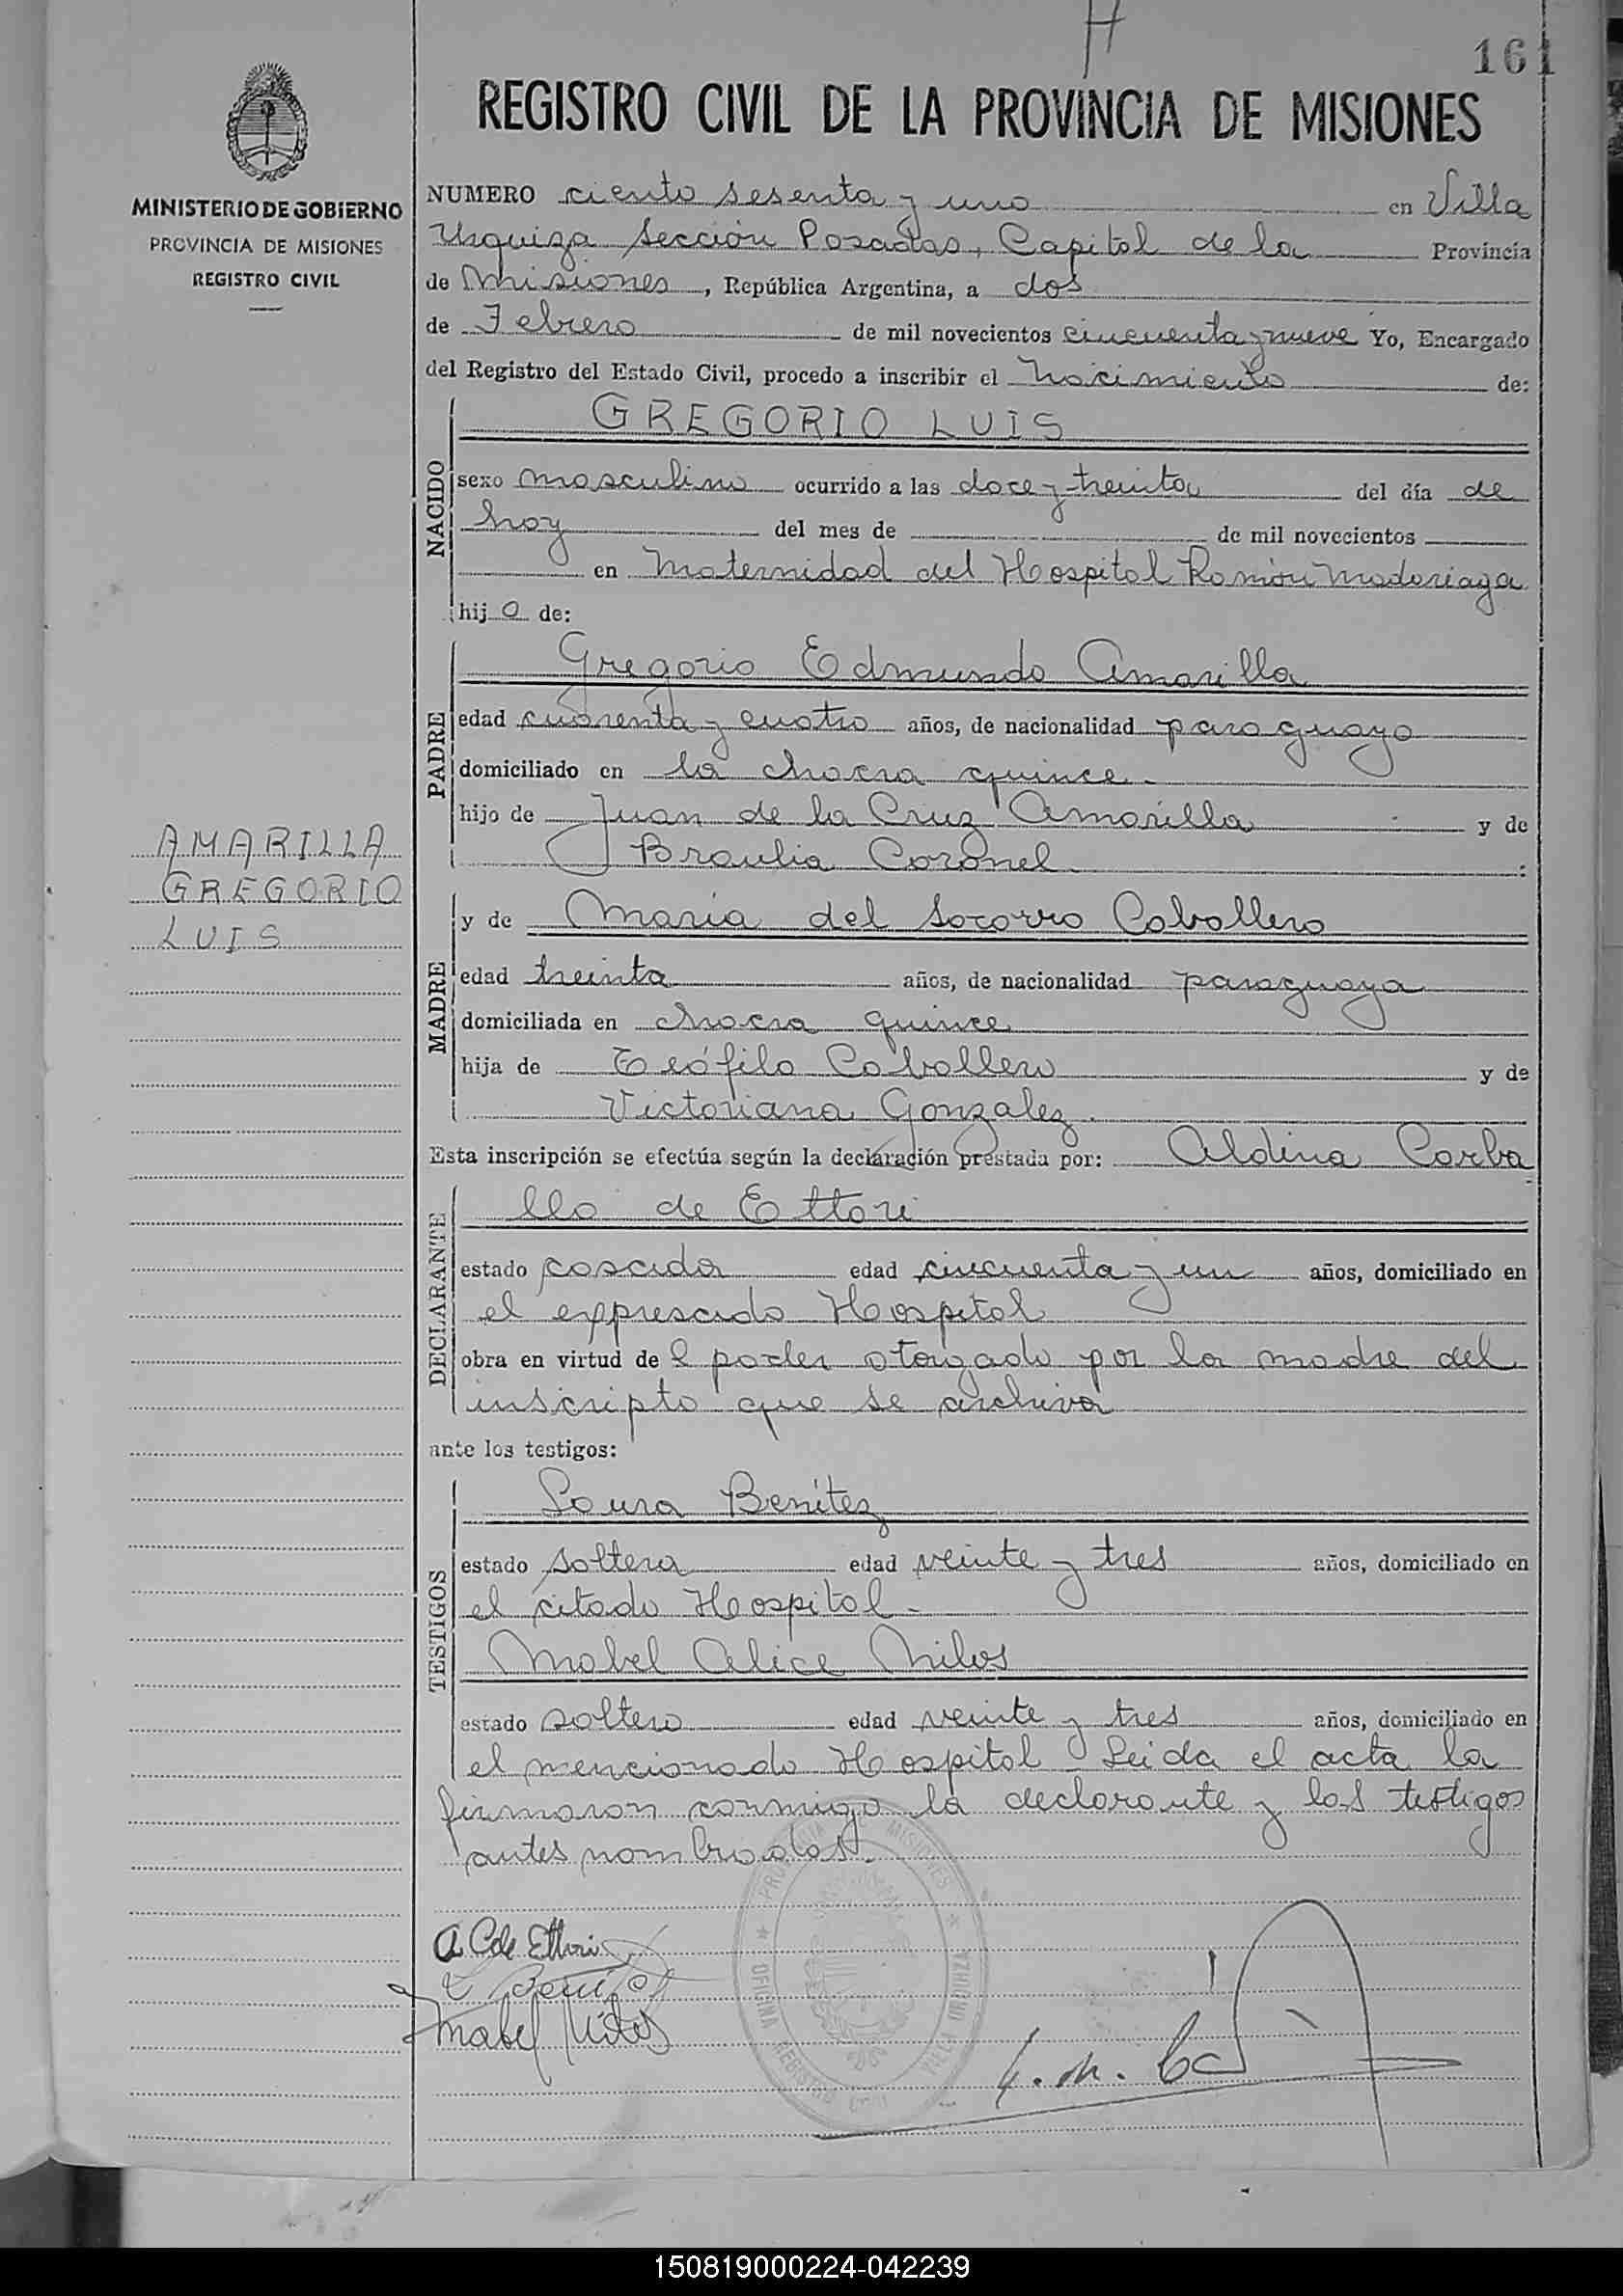 H
161
REGISTRO CIVIL DE LA PROVINCIA DE MISIONES
MINISTERIO DE GOBIERNO
PROVINCIA DE MISIONES
REGISTRO CIVIL
NUMERO ciento sesenta y uno en Villa
Urquiza Sección Posadas, Capital de la Provincia
de Misiones, República Argentina, a dos
de Febrero de mil novecientos cincuenta y nueve Yo, Encargado
del Registro del Estado Civil, procedo a inscribir el nacimiento de:
NACIDO
GREGORIO LUIS
sexo masculino ocurrido a las doce y treinta del día de
hoy del mes de de mil novecientos
en Maternidad del Hospital Ramón Madariaga
hijo de:
PADRE
Gregorio Edmundo Amarilla
edad cuarenta y cuatro años, de nacionalidad paraguayo
domiciliado en la chacra quince.
hijo de Juan de la Cruz Amarilla y de
Braulia Coronel :
AMARILLA
GREGORIO
LUIS
MADRE
y de María del Socorro Caballero
edad treinta años, de nacionalidad paraguaya
domiciliada en chacra quince
hija de Teófilo Caballero y de
Victoriana Gonzalez.
Esta inscripción se efectúa según la declaración prestada por: Aldina Carba
DECLARANTE
llo de Ettori
estado casada edad cincuenta y un años, domiciliado en
el expresado Hospital
obra en virtud del poder otorgado por la madre del
inscripto que se archiva
ante los testigos:
TESTIGOS
Laura Benítez
estado soltera edad veinte y tres años, domiciliado en
el citado Hospital -
Mabel Alice Milos
estado soltera edad veinte y tres años, domiciliado en
el mencionado Hospital - Leida el acta la
firmaron conmigo la declarante y los testigos
antes nombrados.
A C de Ettori
Mabel Milos
PROVINCIA DE MISIONES
OFICINA REGISTRO CIVIL
VILLA URQUIZA
150819000224-042239